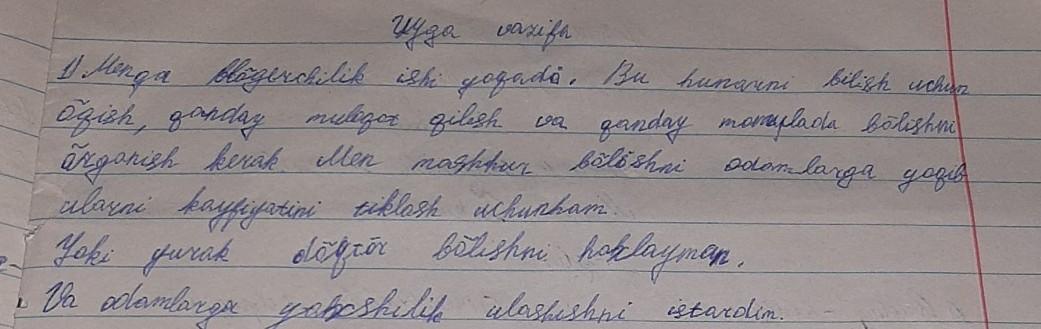 Uyga vazifa
1) Menga blōgerchilik ishi yoqadi. Bu hunarni bilish uchun
ōqish, qanday muloqot qilish va qanday muomilada bōlishni
ōrganish kerak. Men mashhur bōlishni odamlarga yoqib
ularni kayfiyatini tiklash uchunham.
Yoki yurak dōqtōr bōlishni hoxlayman.
Va odamlarga yaxshilik ulashishni istardim.